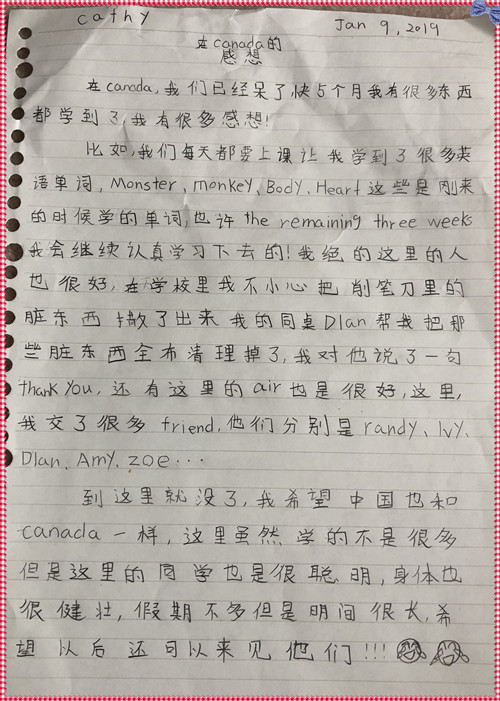 cathy
Jan 9, 2019
在canada的
感想
在canada,我们已经呆了快5个月我有很多东西
都学到了,我有很多感想!
比如,我们每天都要上课让我学到了很多英
语单词,Monster、monkey、Body、Heart这些是刚来
的时候学的单词,也许the remaining three weeks
我会继续认真学习下去的!我绝的这里的人
也很好,在学校里我不小心把削笔刀里的
脏东西撒了出来我的同桌Dlan帮我把那
些脏东西全布清理掉了,我对他说了一句
thank you,还有这里的air也是很好,这里,
我交了很多friend,他们分别是randy、Ivy、
Dlan、Amy、zoe…
到这里就没了,我希望中国也和
canada一样,这里虽然学的不是很多
但是这里的同学也是很聪明,身体也
很健壮,假期不多但是明间很长,希
望以后还可以来见他们!!!